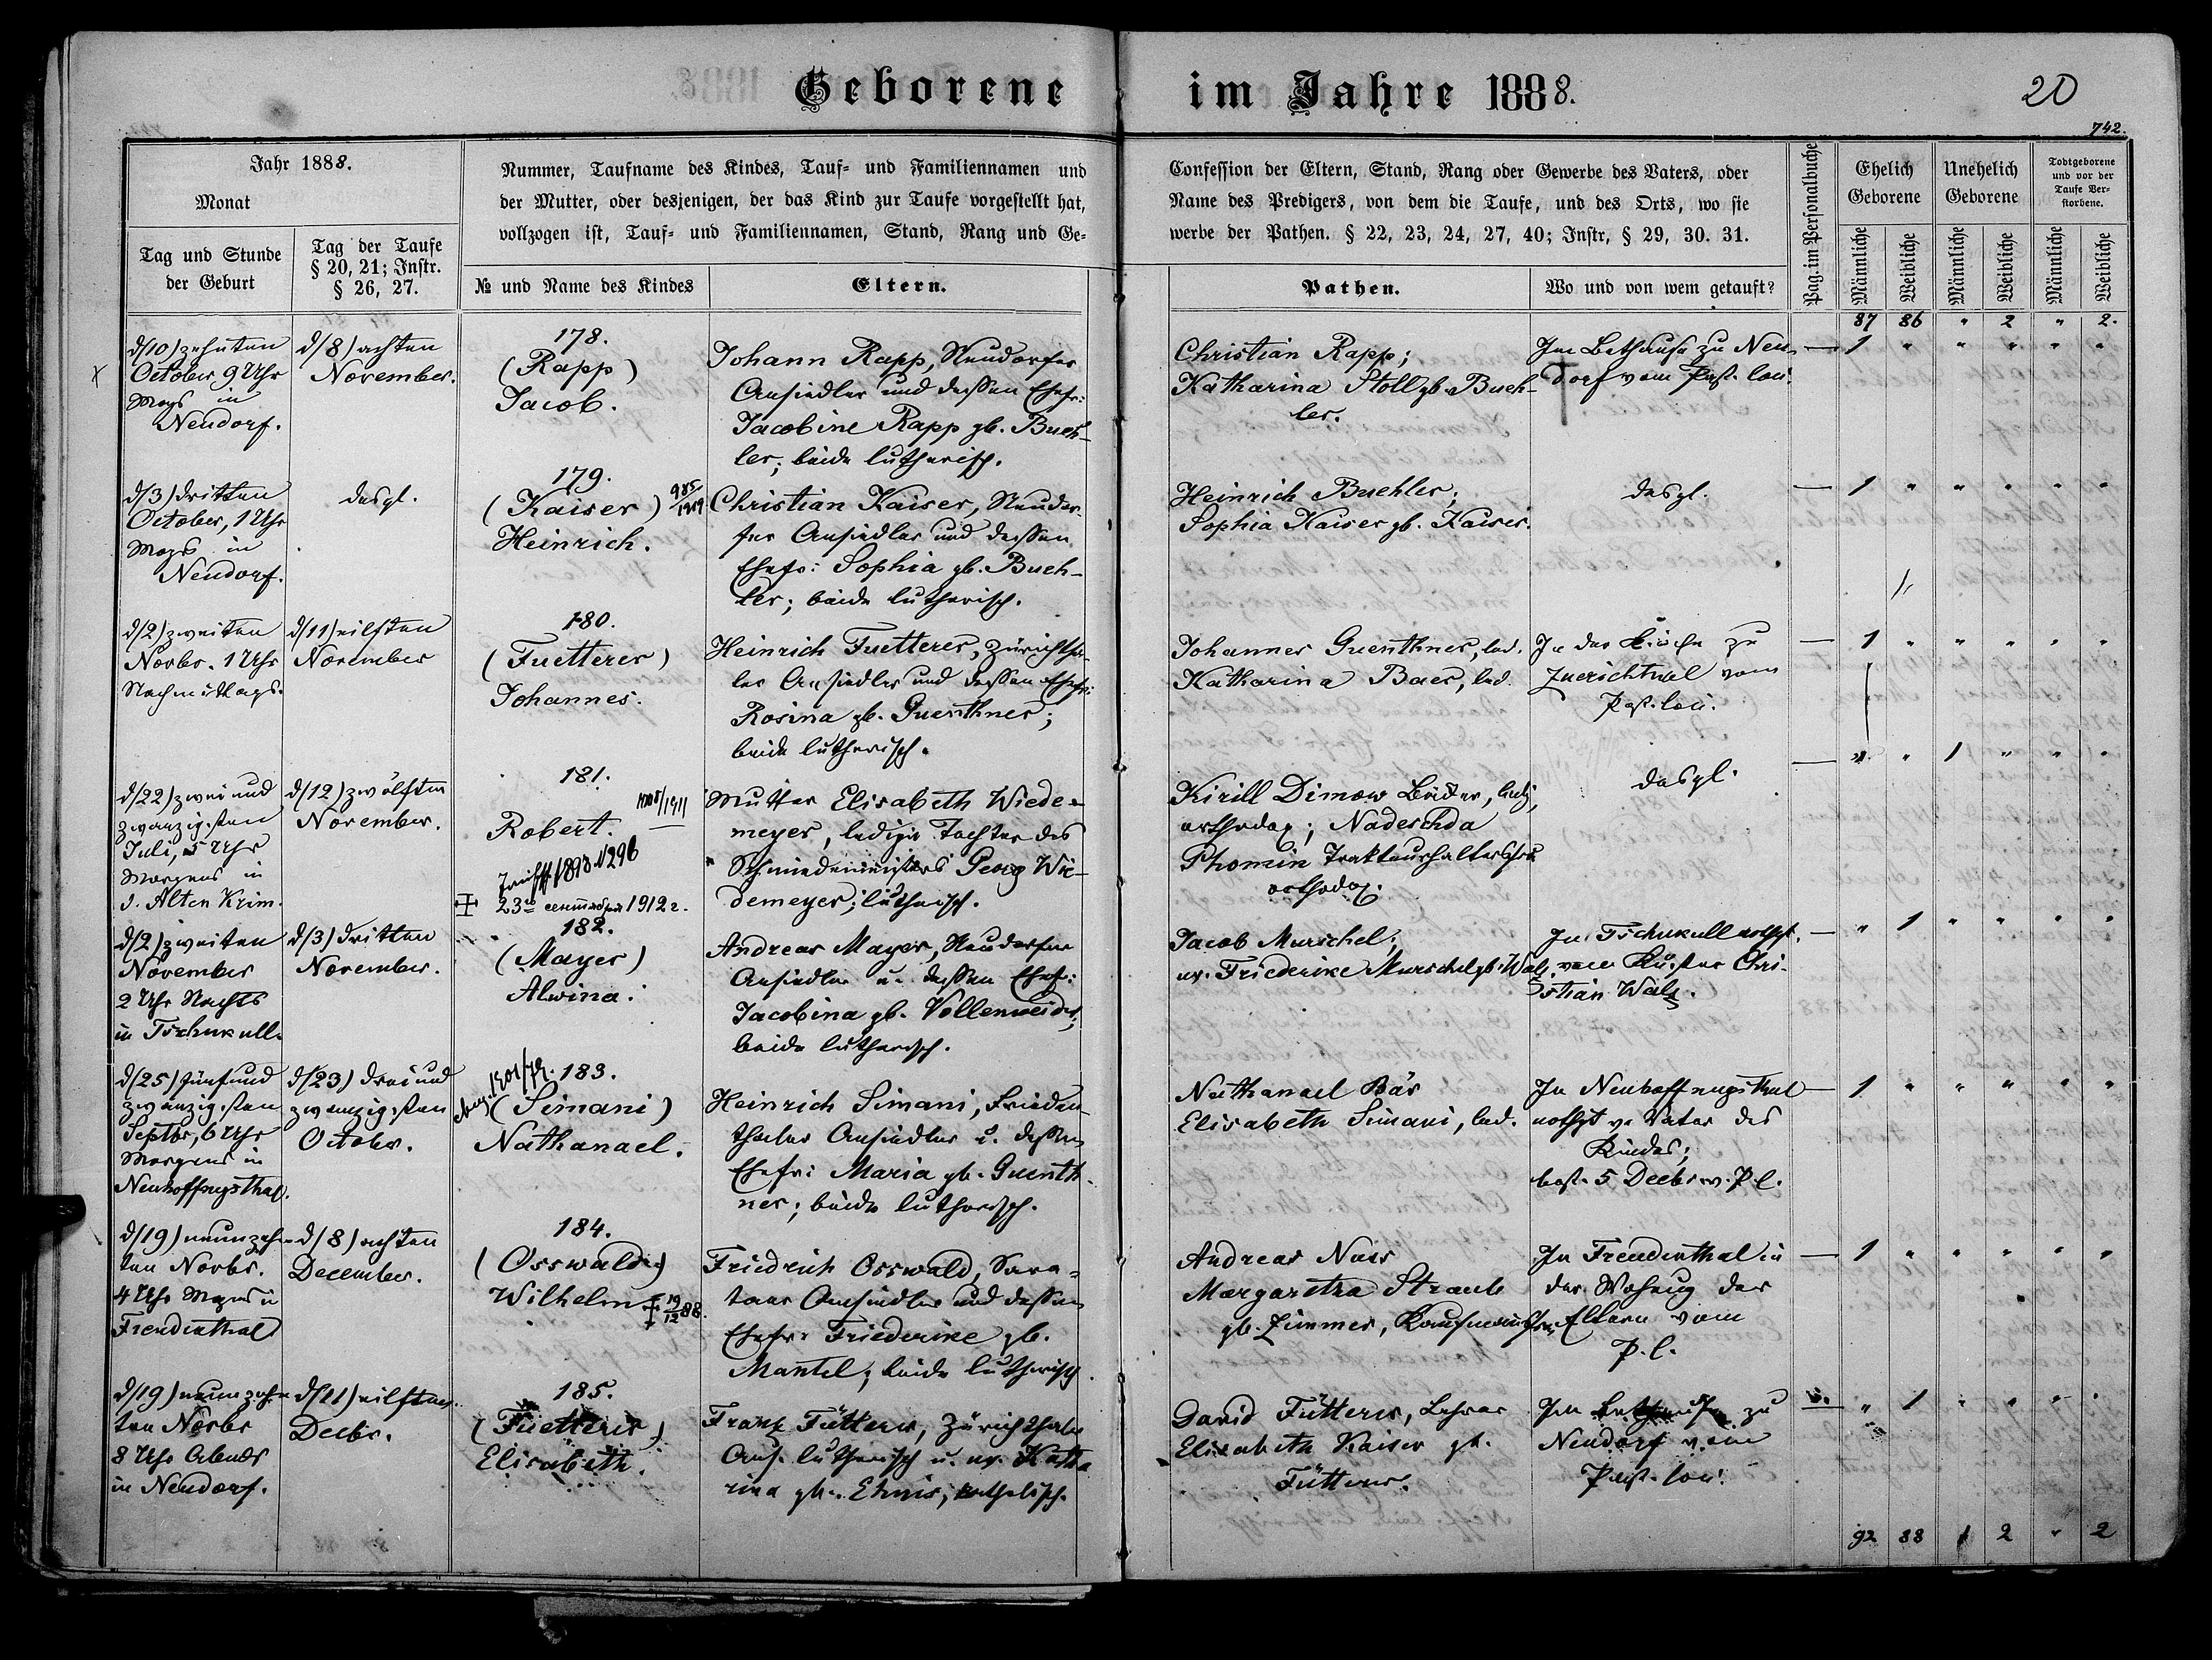 Geborene im Jahre 1888.
20
742.
Jahr 1888.
Monat
Tag und Stunde
der Geburt
Tag der Taufe
§ 20, 21; Instr.
§ 26, 27.
Nummer, Taufname des Kindes, Tauf- und Familiennamen und
der Mutter, oder desjenigen, der das Kind zur Taufe vorgestellt hat,
vollzogen ist, Tauf- und Familiennamen, Stand, Rang und Ge-
№ und Name des Kindes
Eltern.
Confession der Eltern, Stand, Rang oder Gewerbe des Vaters, oder
Name des Predigers, von dem die Taufe, und des Orts, wo sie
werbe der Pathen. § 22, 23, 24, 27, 40; Instr, § 29, 30. 31.
Pathen.
Wo und von wem getauft?
Pag. im Personalbuche
Ehelich
Geborene
Unehelich
Geborene
Todtgeborene
und vor der
Taufe Ver-
storbene.
Männliche
Weibliche
Männliche
Weibliche
Männliche
Weibliche
87 86 " 2 " 2.
d/10) zehnten
October 9 Uhr
Mogs in
Neudorf.
d/8) achten
November.
178.
(Rapp)
Jacob.
Johann Rapp, Neudorfer
Ansiedler und dessen Ehefr:
Jacobine Rapp gb. Bueh-
ler; beide lutherisch.
Christian Rapp;
Katharina Stoll gb. Bueh-
ler.
Im Bethause zu Neu-
dorf vom Past. loci.
— 1 " " " " "
d/3) dritten
October, 1 Uhr
Mogs in
Neudorf.
desgl.
179.
(Kaiser) 985/1909
Heinrich.
Christian Kaiser, Neudor-
fer Ansiedler und dessen
Ehefr: Sophia gb. Bueh-
ler; beide lutherisch.
Heinrich Buehler;
Sophia Kaiser gb. Kaiser.
desgl.
— 1 " " " " "
d/2) zweiten
Novbr. 1 Uhr
Nachmittags.
d/11) eilften
November
180.
(Fuetterer)
Johannes.
Heinrich Fuetterer, Zürichtha-
ler Ansiedler und dessen Ehefr:
Rosina gb. Guenthner;
beide lutherisch.
Johannes Guenthner, led.
Katharina Baer, led.
In der Kirche zu
Zuerichthal vom
Past. loci.
— 1 " " " " "
d/22) zwei und
zwanzigsten
Juli, 5 Uhr
Morgens in
d. Alten Krim.
d/12) zwölften
November.
181.
Robert.
1893 N 296
23го сентября 1912 г.
Mutter Elisabeth Wiede-
meyer, ledige Tochter des
Schmiedemeisters Georg Wie-
demeyer; lutherisch.
Kirill Dimow Bäcker, led.,
orthodox; Nadeschda
Phomin Trakteurhaltersfrau
orthodox.
desgl.
— " " 1 " " "
d/2) zweiten
November
2 Uhr Nachts
in Tschukull.
d/3) dritten
November.
182.
(Mayer)
Alwina.
Andreas Mayer, Neudorfer
Ansiedler u. dessen Ehefr:
Jacobina gb. Vollenweider;
beide lutherisch.
Jacob Murschel;
ux. Friederike Murschel gb. Walz.
In Tschukull nothgt.
vom Küster Chri-
stian Walz.
— " 1 " " " "
d/25) fünfund
zwanzigsten
Septbr, 6 Uhr
Morgens in
Neuhoffngsthal.
d/23) dreiund
zwanzigsten
October.
183.
(Simani)
Nathanael.
Heinrich Simani, Frieden-
thaler Ansiedler u. dessen
Ehefr: Maria gb. Guenth-
ner; beide lutherisch.
Nathanael Bär
Elisabeth Simani, led.
In Neuhoffnugsthal
nothgt v. Vater des
Kindes;
best. 5 Decbr v. P. l.
— 1 " " " " "
d/19) neunzehn-
ten Novbr.
4 Uhr Mogns in
Freudenthal
d/8) achten
December.
184.
(Osswald)
Wilhelm ‡ 19/12 88.
Friedrich Osswald, Sara-
taer Ansiedler und dessen
Ehefr: Friederike gb.
Mantel; beide lutherisch.
Andreas Nuss
Margaretha Straub
gb. Zimmer, Kaufmannsfr.
In Freudenthal in
der Wohnug der
Eltern vom
P. l.
— 1 " " " " "
d/19) neunzehn-
ten Novbr
8 Uhr Abends
in Neudorf.
d/11) eilften
Decbr.
185.
(Fuetterer)
Elisabeth.
Franz Fütterer, Zürichthaler
Ans. lutherisch u. ux. Katha-
rina gb. Ehnis, katholisch.
David Fütterer, Lehrer
Elisabeth Kaiser gb.
Fütterer.
Im Bethause zu
Neudorf vom
Past. loci.
" 1 " " " "
92 88 1 2 " 2